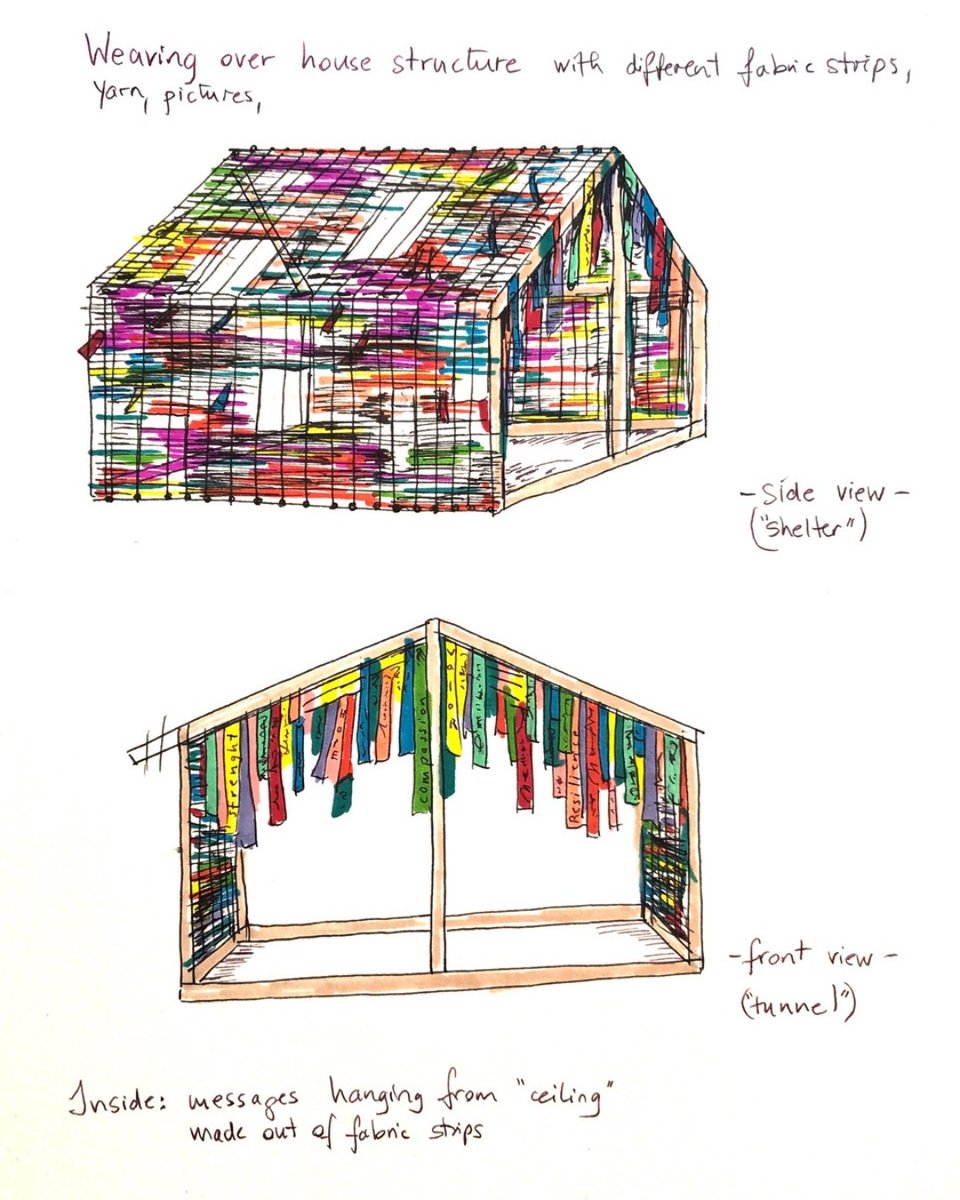 Weaving over house structure with different fabric strips,
Yarn, pictures,
- Side view -
("shelter")
strenght
compassion
Resilience
- front view -
("tunnel")
Inside: messages hanging from "ceiling"
made out of fabric strips